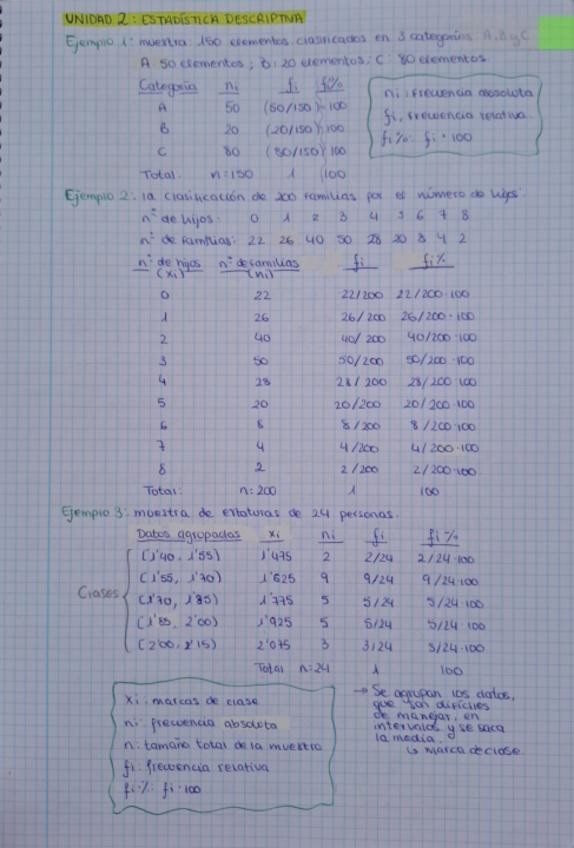 UNIDAD 2: ESTADÍSTICA DESCRIPTIVA
Ejemplo 1: muestra: 150 elementos clasificados en 3 categorías: A, B y C
A: 50 elementos; B: 20 elementos; C: 80 elementos
Categoría ni fi fi%
A 50 (50/150) 100
B 20 (20/150) 100
C 80 (80/150) 100
Total: n=150 1 100
ni: frecuencia absoluta
fi: frecuencia relativa
fi%: fi · 100
Ejemplo 2: la clasificación de 200 familias por el número de hijos:
nº de hijos: 0 1 2 3 4 5 6 7 8
nº de familias: 22 26 40 50 28 20 8 4 2
nº de hijos (xi) nº de familias (ni) fi fi%
0 22 22/200 22/200·100
1 26 26/200 26/200·100
2 40 40/200 40/200·100
3 50 50/200 50/200·100
4 28 28/200 28/200·100
5 20 20/200 20/200·100
6 8 8/200 8/200·100
7 4 4/200 4/200·100
8 2 2/200 2/200·100
Total: n=200 1 100
Ejemplo 3: muestra de estaturas de 24 personas.
Datos agrupados xi ni fi fi%
(1'40, 1'55) 1'475 2 2/24 2/24·100
(1'55, 1'70) 1'625 9 9/24 9/24·100
Clases (1'70, 1'85) 1'775 5 5/24 5/24·100
(1'85, 2'00) 1'925 5 5/24 5/24·100
(2'00, 2'15) 2'075 3 3/24 3/24·100
Total n=24 1 100
xi: marcas de clase
ni: frecuencia absoluta
n: tamaño total de la muestra
fi: frecuencia relativa
fi%: fi·100
→ Se agrupan los datos,
que son difíciles
de manejar, en
intervalos y se saca
la media.
↳ marca de clase